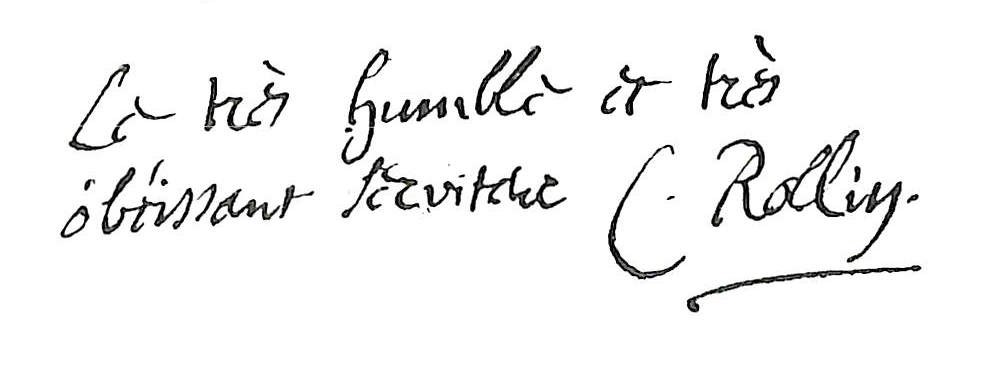 Le très humble et très
obéissant serviteur C. Rollin.